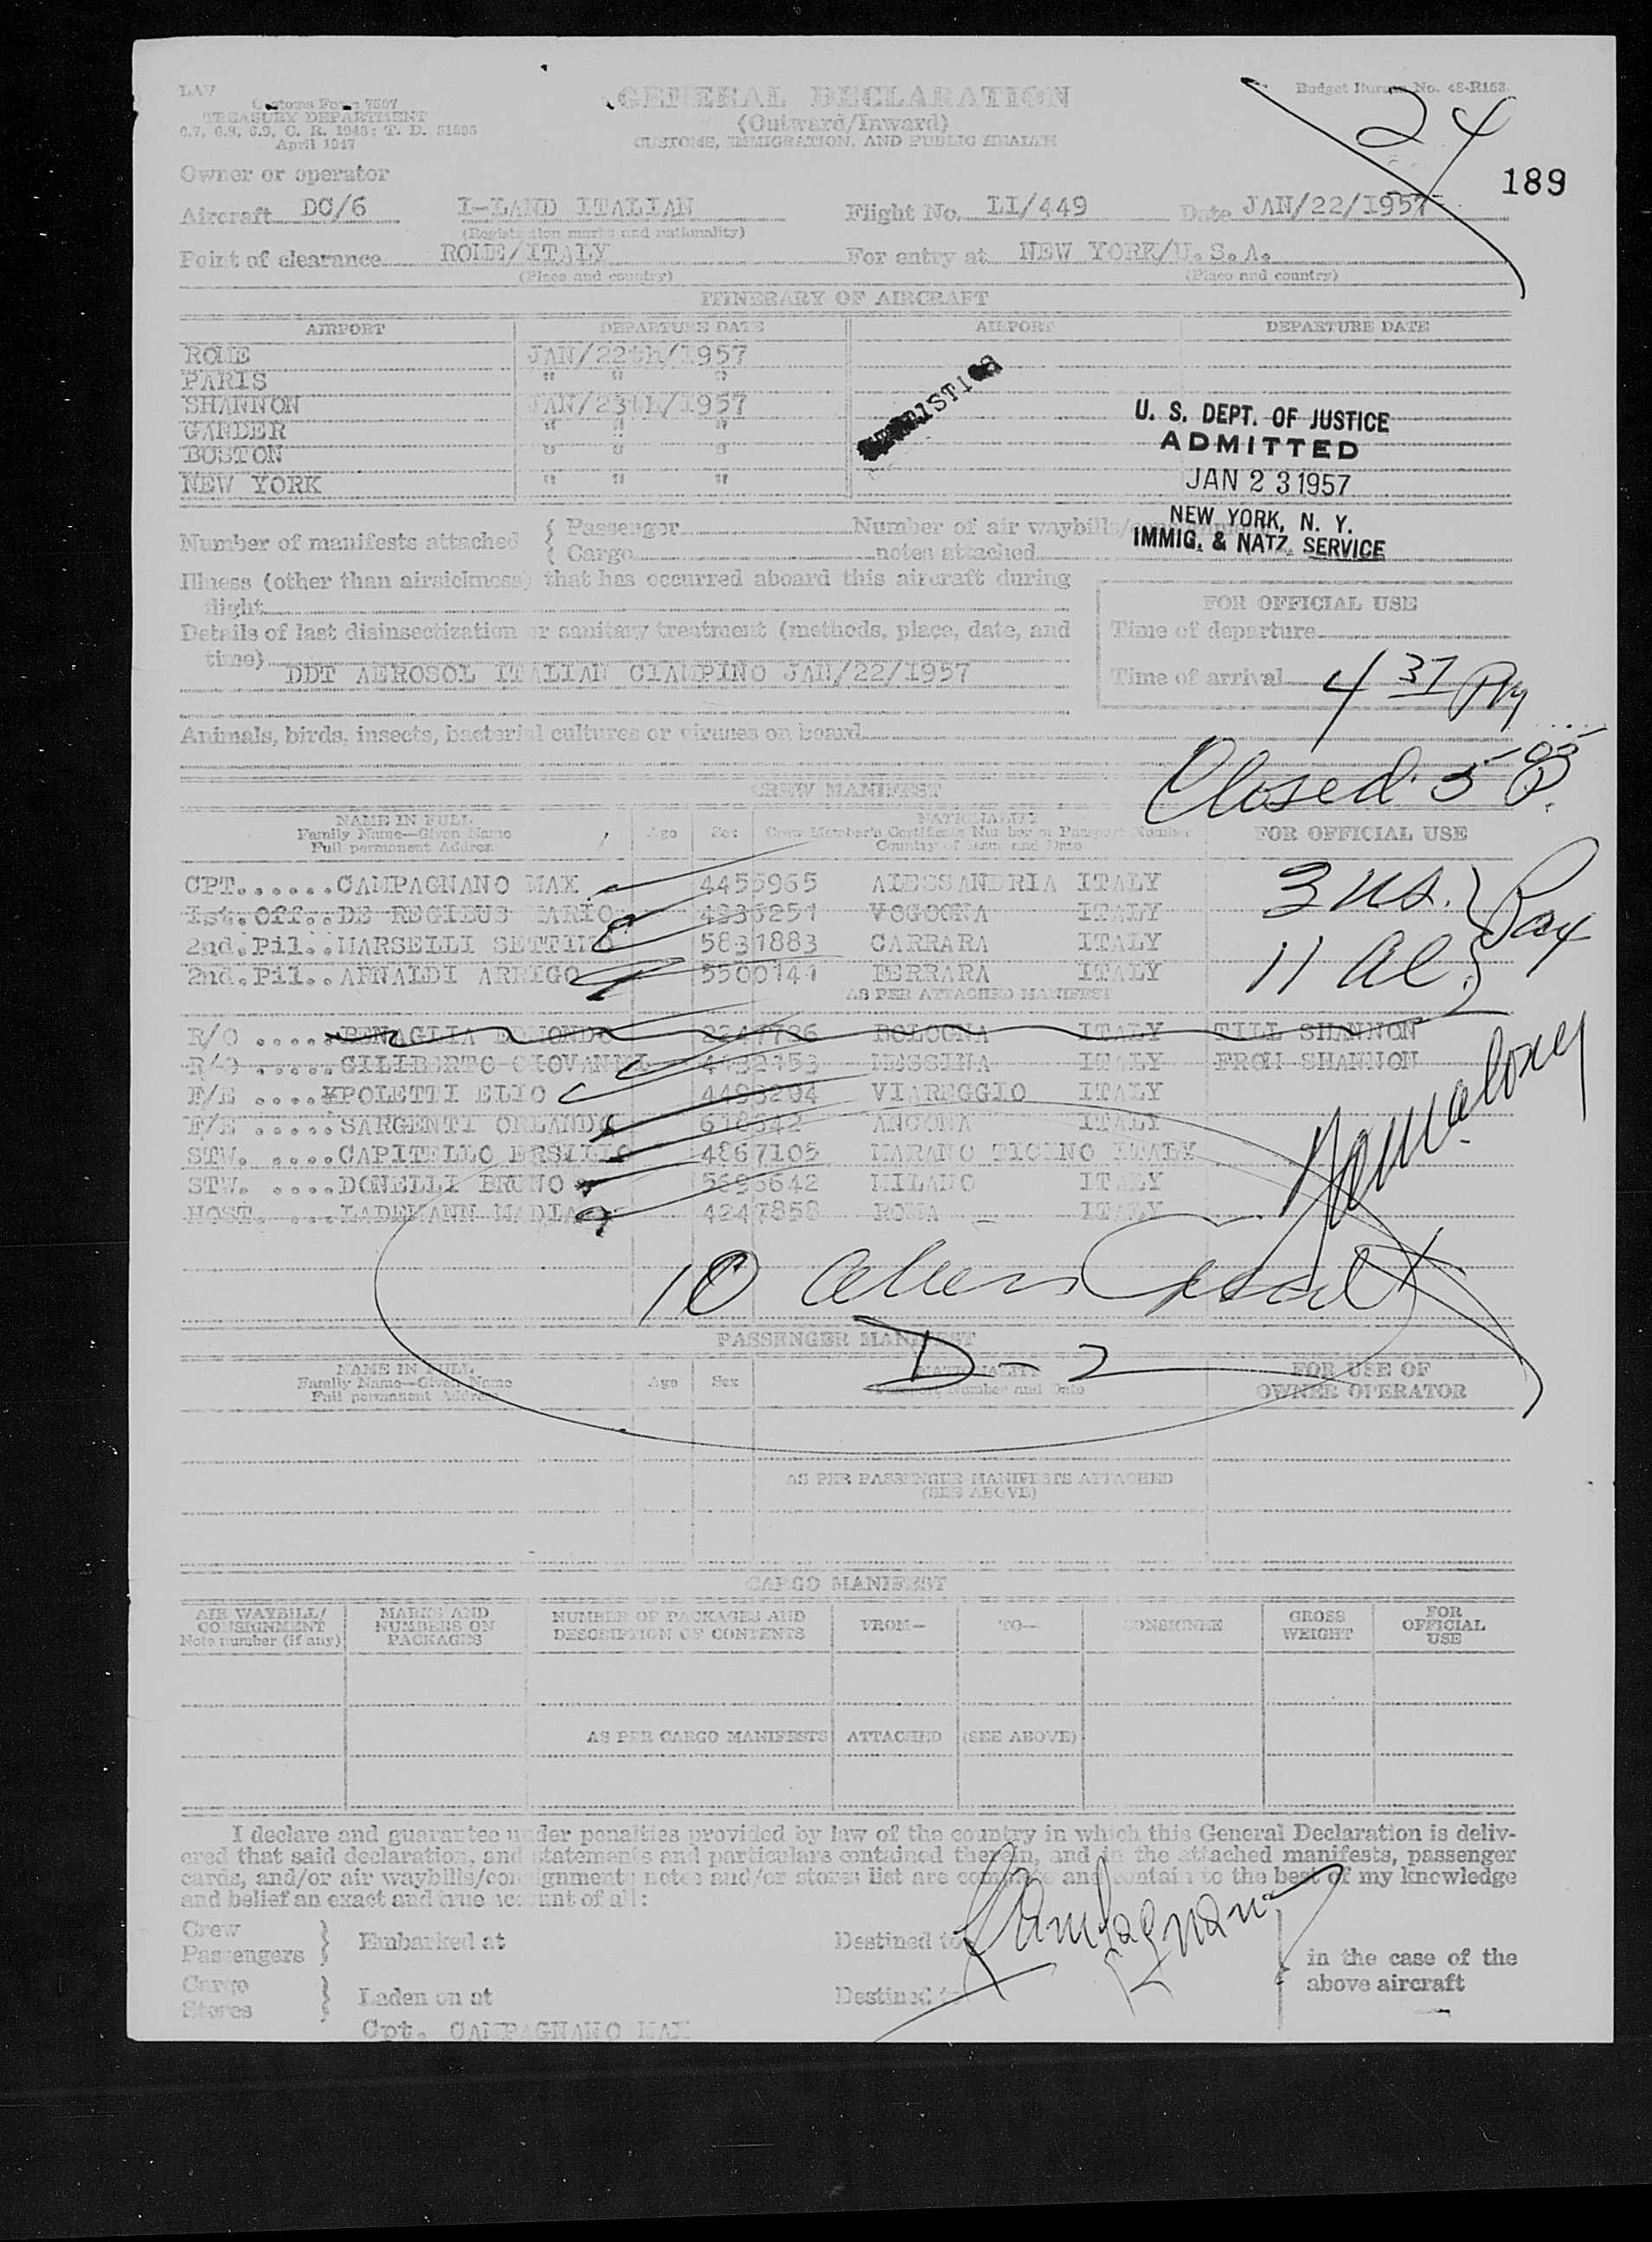 LAI
Customs Form 7507
TREASURY DEPARTMENT
6.7, 6.8, 6.9, C. R. 1943; T. D. 51595
April 1947
GENERAL DECLARATION
(Outward/Inward)
CUSTOMS, IMMIGRATION, AND PUBLIC HEALTH
Budget Bureau No. 48-R153.
24
189
Owner or operator
Aircraft DC/6 I-LAND ITALIAN Flight No. LI/449 Date JAN/22/1957
(Registration marks and nationality)
Point of clearance ROME/ITALY For entry at NEW YORK/U.S.A.
(Place and country) (Place and country)
ITINERARY OF AIRCRAFT
AIRPORT DEPARTURE DATE AIRPORT DEPARTURE DATE
ROME JAN/22th/1957
PARIS " " "
SHANNON JAN/23th/1957
GANDER " " "
BOSTON " " "
NEW YORK " " "
U. S. DEPT. OF JUSTICE
ADMITTED
JAN 23 1957
NEW YORK, N. Y.
IMMIG. & NATZ. SERVICE
Number of manifests attached { Passenger Number of air waybills/
{ Cargo notes attached
Illness (other than airsickness) that has occurred aboard this aircraft during
flight
Details of last disinsectization or sanitary treatment (methods, place, date, and
time)
DDT AEROSOL ITALIAN CIAMPINO JAN/22/1957
FOR OFFICIAL USE
Time of departure
Time of arrival 4 37 PM
Animals, birds, insects, bacterial cultures or viruses on board
Closed 5 05 P.
CREW MANIFEST
NAME IN FULL
Family Name—Given Name
Full permanent Address
Age Sex
NATIONALITY
Crew Member's Certificate Number or Passport Number
Country of Issue and Date
FOR OFFICIAL USE
CPT......CAMPAGNANO MAX 4455965 ALESSANDRIA ITALY
Ist.Off..DE REGIBUS MARIO 4835251 VOGOGNA ITALY
2nd.Pil..MARSELLI SETTIMO 5831883 CARRARA ITALY
2nd.Pil..ARNALDI ARRIGO 5500141 FERRARA ITALY
AS PER ATTACHED MANIFEST
3 us. } Pax
11 al. }
R/O .....BENAGLIA EDMONDO 2247726 BOLOGNA ITALY TILL SHANNON
R/O .....GILIBERTO GIOVANNI 4432453 MESSINA ITALY FROM SHANNON
F/E ....POLETTI ELIO 4493204 VIAREGGIO ITALY
F/E .....SARGENTI ORLANDO 618642 ANCONA ITALY
STW. ....CAPITELLO ERSILIO 4867105 MARANO TICINO ITALY
STW. ....DONELLI BRUNO 5695642 MILANO ITALY
HOST. ....LADEMANN MADIA 4247858 ROMA ITALY
10 aliens
D-2
PASSENGER MANIFEST
NAME IN FULL
Family Name—Given Name
Full permanent Address
Age Sex
NATIONALITY
Passport Number and Date
FOR USE OF
OWNER OPERATOR
AS PER PASSENGER MANIFESTS ATTACHED
(SEE ABOVE)
CARGO MANIFEST
AIR WAYBILL/
CONSIGNMENT
Note number (if any)
MARKS AND
NUMBERS ON
PACKAGES
NUMBER OF PACKAGES AND
DESCRIPTION OF CONTENTS
FROM— TO— CONSIGNEE
GROSS
WEIGHT
FOR
OFFICIAL
USE
AS PER CARGO MANIFESTS ATTACHED (SEE ABOVE)
I declare and guarantee under penalties provided by law of the country in which this General Declaration is deliv-
ered that said declaration, and statements and particulars contained therein, and in the attached manifests, passenger
cards, and/or air waybills/consignment notes and/or stores list are complete and contain to the best of my knowledge
and belief an exact and true account of all:
Crew
Passengers } Embarked at Destined to
Cargo
Stores } Laden on at Destined to
in the case of the
above aircraft
Campagnano
Cpt. CAMPAGNANO MAX